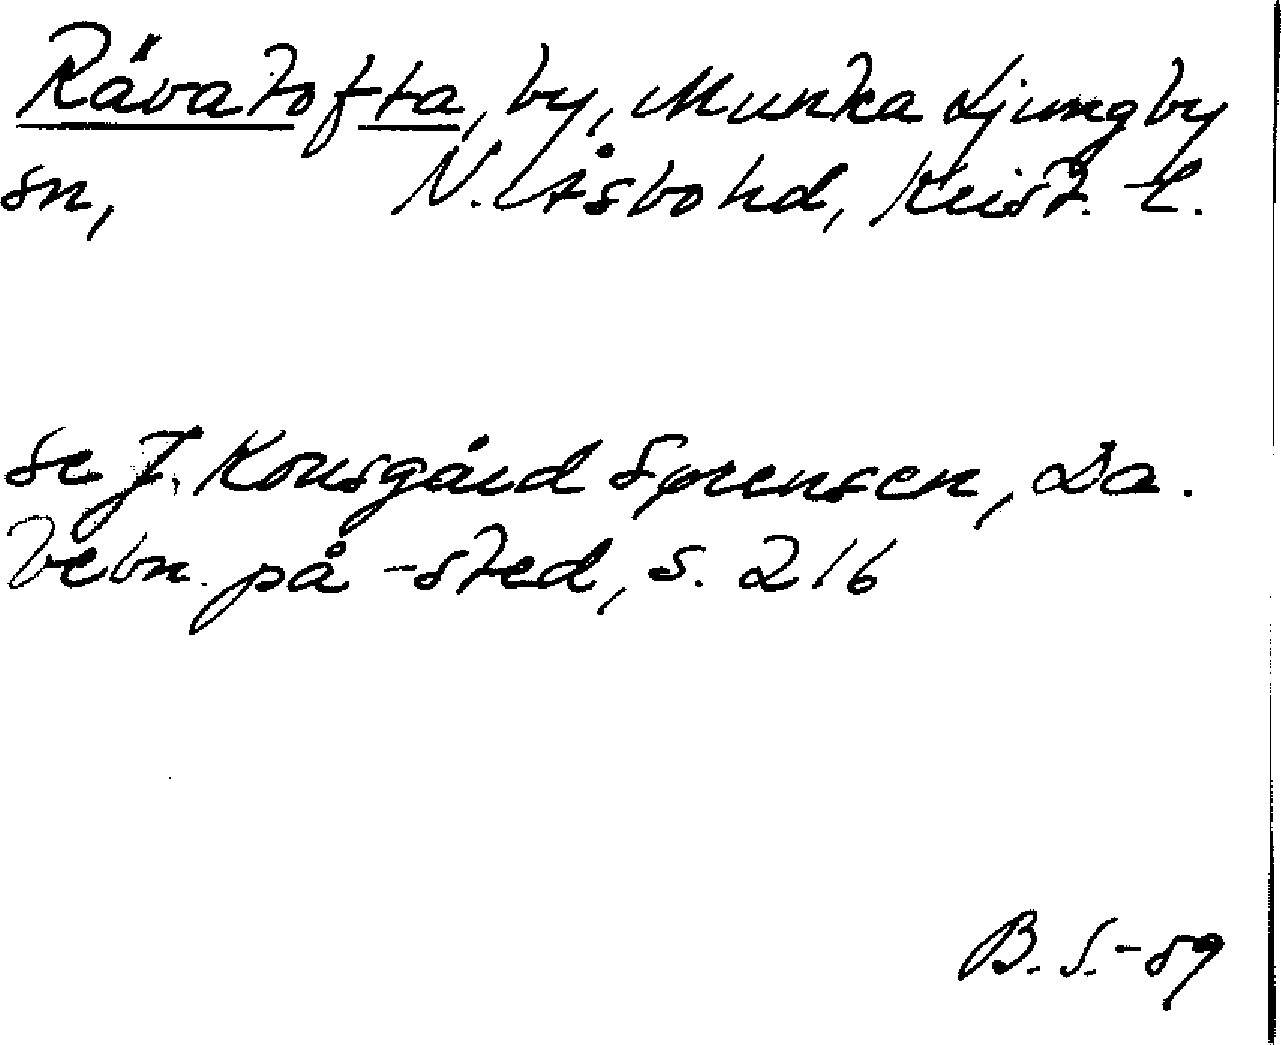 Rävatofta, by, Munka Ljungby
sn, N. Åsbo hd, Krist. l.
se J. Kousgård Sørensen, Da.
bebn. på -sted, s. 216
B. S. -59